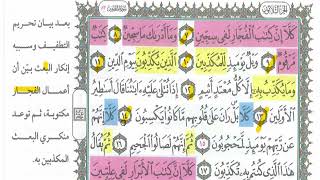 الجزء الثلاثون
كَلَّا إِنَّ كِتَٰبَ ٱلْفُجَّارِ لَفِى سِجِّينٍ ٧ وَمَآ أَدْرَىٰكَ مَا سِجِّينٌ ٨ كِتَٰبٌ
مَّرْقُومٌ ٩ وَيْلٌ يَوْمَئِذٍ لِّلْمُكَذِّبِينَ ١٠ ٱلَّذِينَ يُكَذِّبُونَ بِيَوْمِ ٱلدِّينِ ١١
وَمَا يُكَذِّبُ بِهِۦٓ إِلَّا كُلُّ مُعْتَدٍ أَثِيمٍ ١٢ إِذَا تُتْلَىٰ عَلَيْهِ ءَايَٰتُنَا قَالَ أَسَٰطِيرُ
ٱلْأَوَّلِينَ ١٣ كَلَّا بَلْ رَانَ عَلَىٰ قُلُوبِهِم مَّا كَانُوا۟ يَكْسِبُونَ ١٤ كَلَّآ إِنَّهُمْ
عَن رَّبِّهِمْ يَوْمَئِذٍ لَّمَحْجُوبُونَ ١٥ ثُمَّ إِنَّهُمْ لَصَالُوا۟ ٱلْجَحِيمِ ١٦ ثُمَّ يُقَالُ
هَٰذَا ٱلَّذِى كُنتُم بِهِۦ تُكَذِّبُونَ ١٧ كَلَّآ إِنَّ كِتَٰبَ ٱلْأَبْرَارِ لَفِى عِلِّيِّينَ
بعد بيان تحريم
التطفيف وسببه
إنكار البعث بيّن أن
أعمال الفجار
مكتوبة، ثم توعد
منكري البعث
المكذبين به.